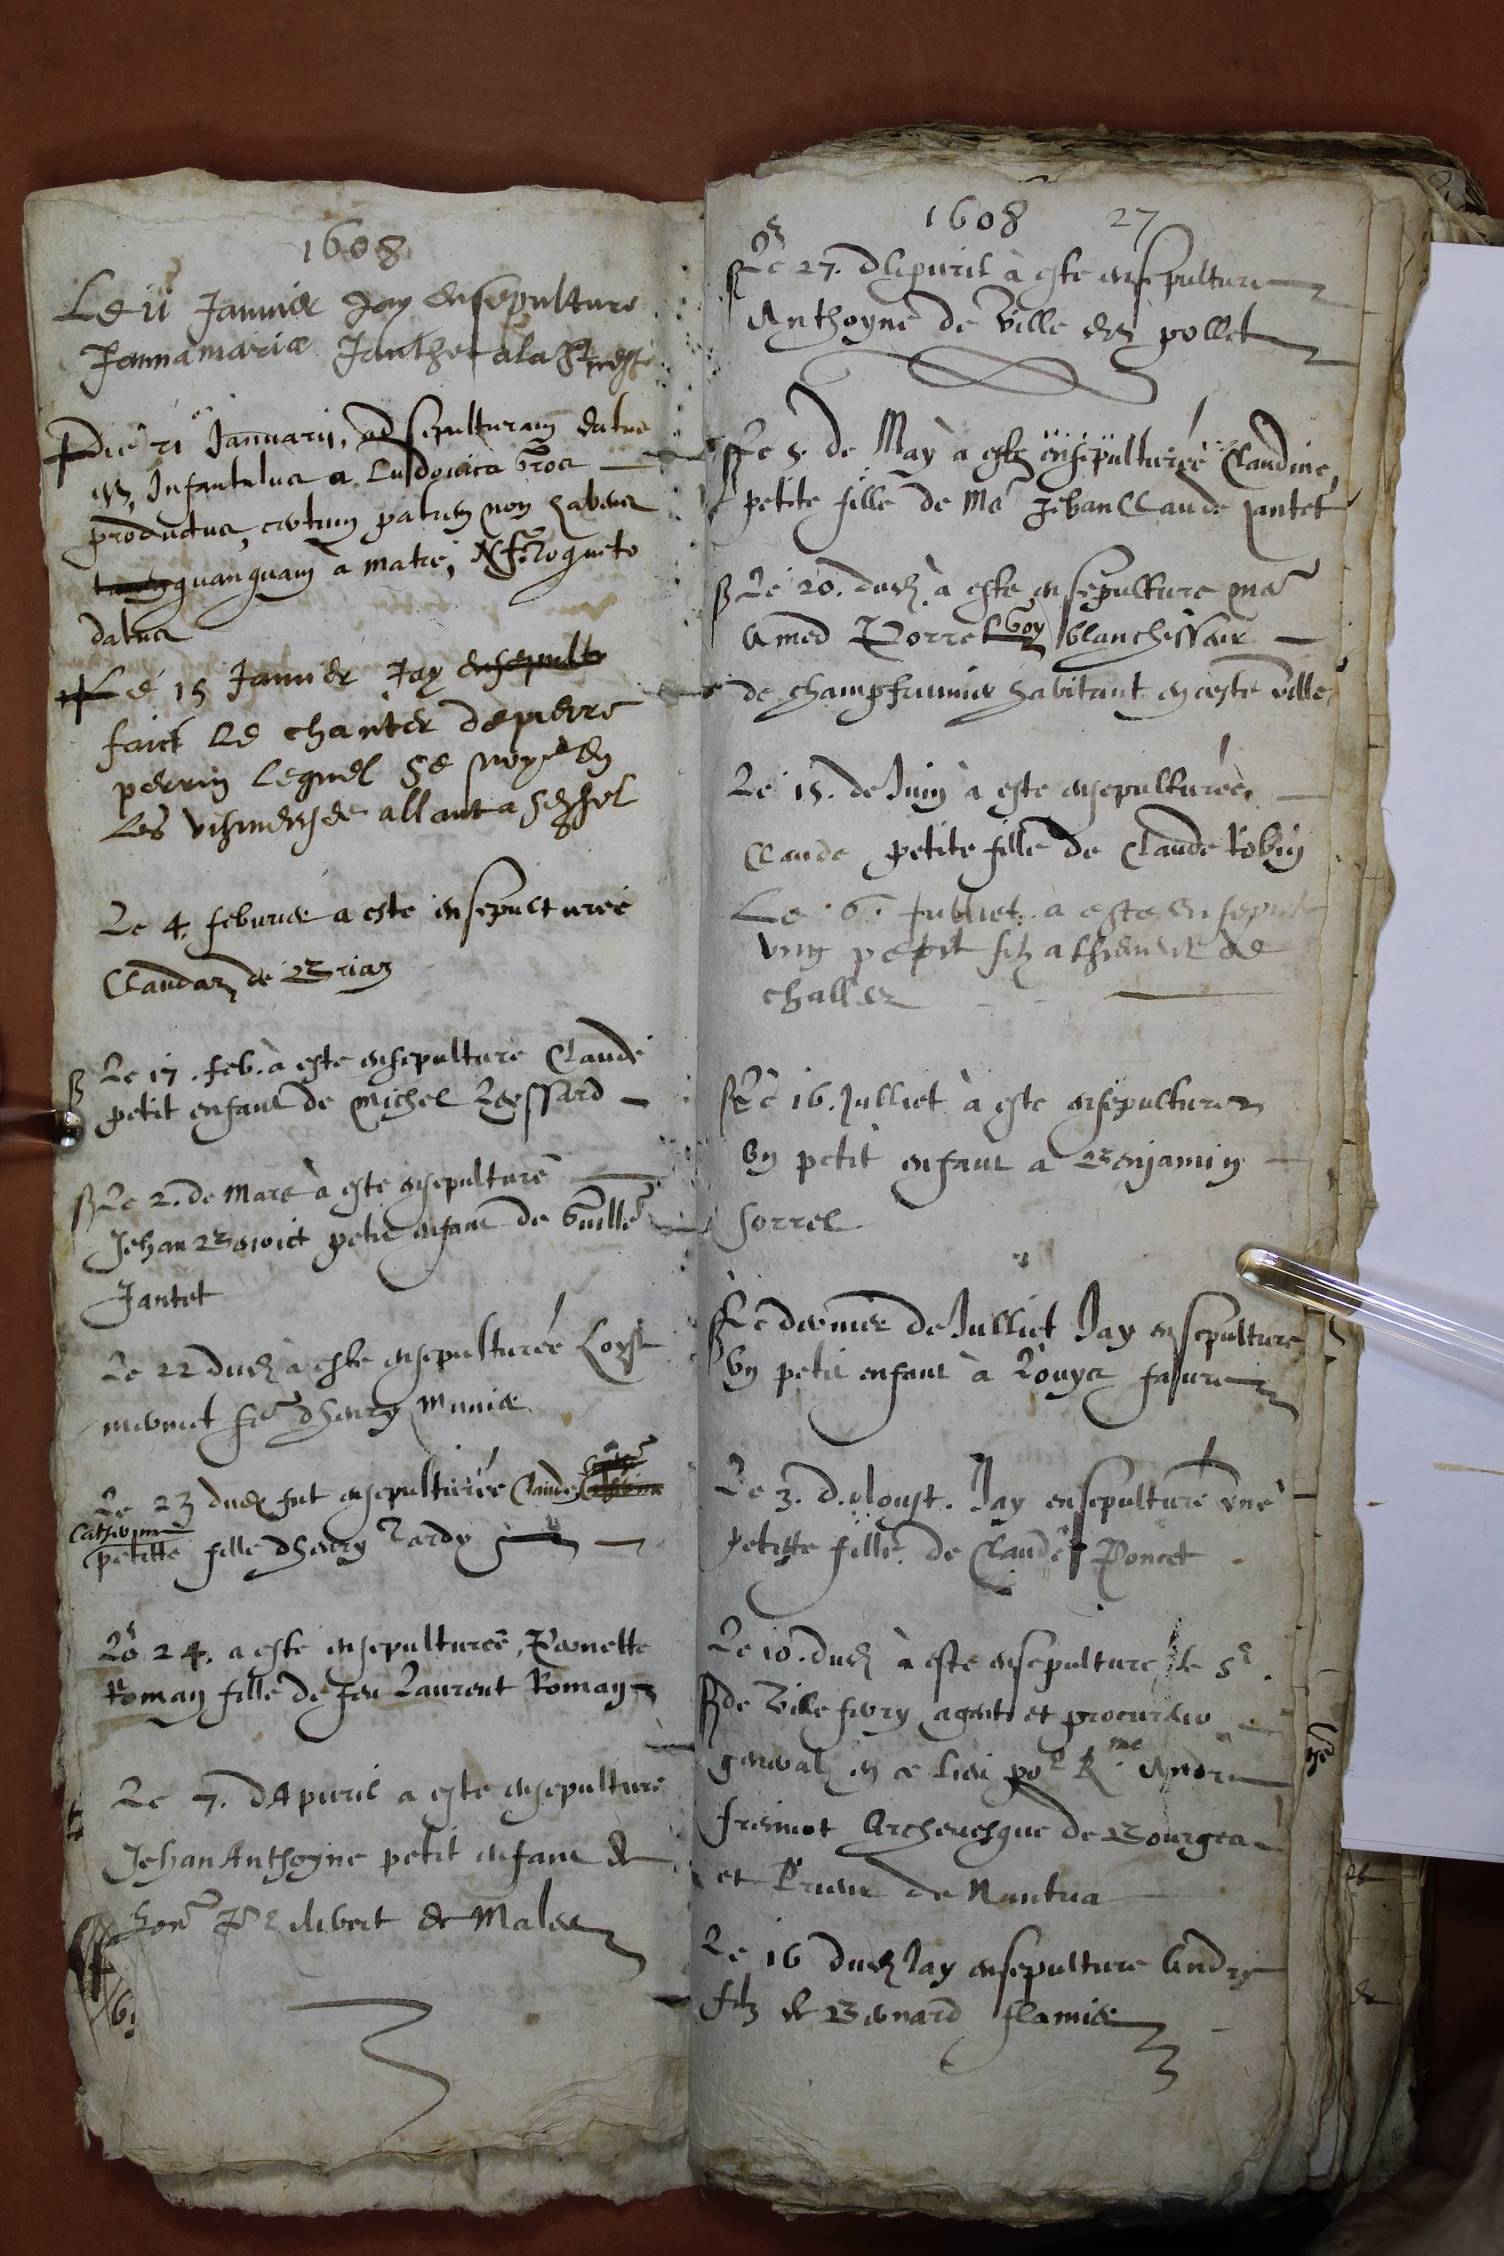 1608
Le 11 Janvier Jay ensepulture
Jannamaria Janthet a la
Die 21 Januarii, ad sepulturam datus
est, Infantulus a Ludovica Gros
productus, certum patrem non habens
quanquam a matre,
datus
Le 15 Janvier Jay ensepult
faict le chanter de pierre
perrin lequel se noya en
les allant a Seyssel
Le 4. febvrier a este ensepulturée
Claudaz de Briaz
Le 17. feb. à este ensepulture Claude
petit enfant de Michel
Le 2. de Mars à este ensepulturé
Jehan Benoict petit enfant de Guille
Jantet
Le 22 dud à este ensepulturée Loyse
mermet fe d'henry
Le 23 dud fut ensepulturée Claude
Catherine
petitte fille d'henry Tardy
Le 24. a este ensepulturée, Pernette
Roman fille de feu Laurent Roman
Le 7. d'Apvril a este ensepulture
Jehan Anthoyne petit enfant de
hon Philibert de Malaz
1608 27
Le 27. d'Apvril à este ensepulture
Anthoyne de Ville dez pollet
Le 5. de May à este ensepulturée Claudine,
petite fille de Me Jehan Claude Jantet
Le 20. dud. à este ensepulture me
Amed Porret Goy blanchessair
de champfrumier habitant en ceste ville
Le 15. de Juin à este ensepulturée,
Claude petite fille de Claude Robin
Le 6. Julliet a este ensepult
ung petit filz a de
challes
Le 16. Julliet à este ensepulture
Un petit enfant a Benjamin
Sorrel
Le dernier de Julliet Jay ensepulture
Un petit enfant à Louys favre
Le 3. d'Aoust. Jay ensepulturé une
petitte fille de Claude Poncet
Le 10. dud à este ensepulture le Sr
de Villefivry agent et procureur
general en ce lieu por Rme Andre
fremiot Archevesque de Bourges
et Prieur de Nantua
Le 16 dud Jay ensepulture Andre
filz de Bernard flamier